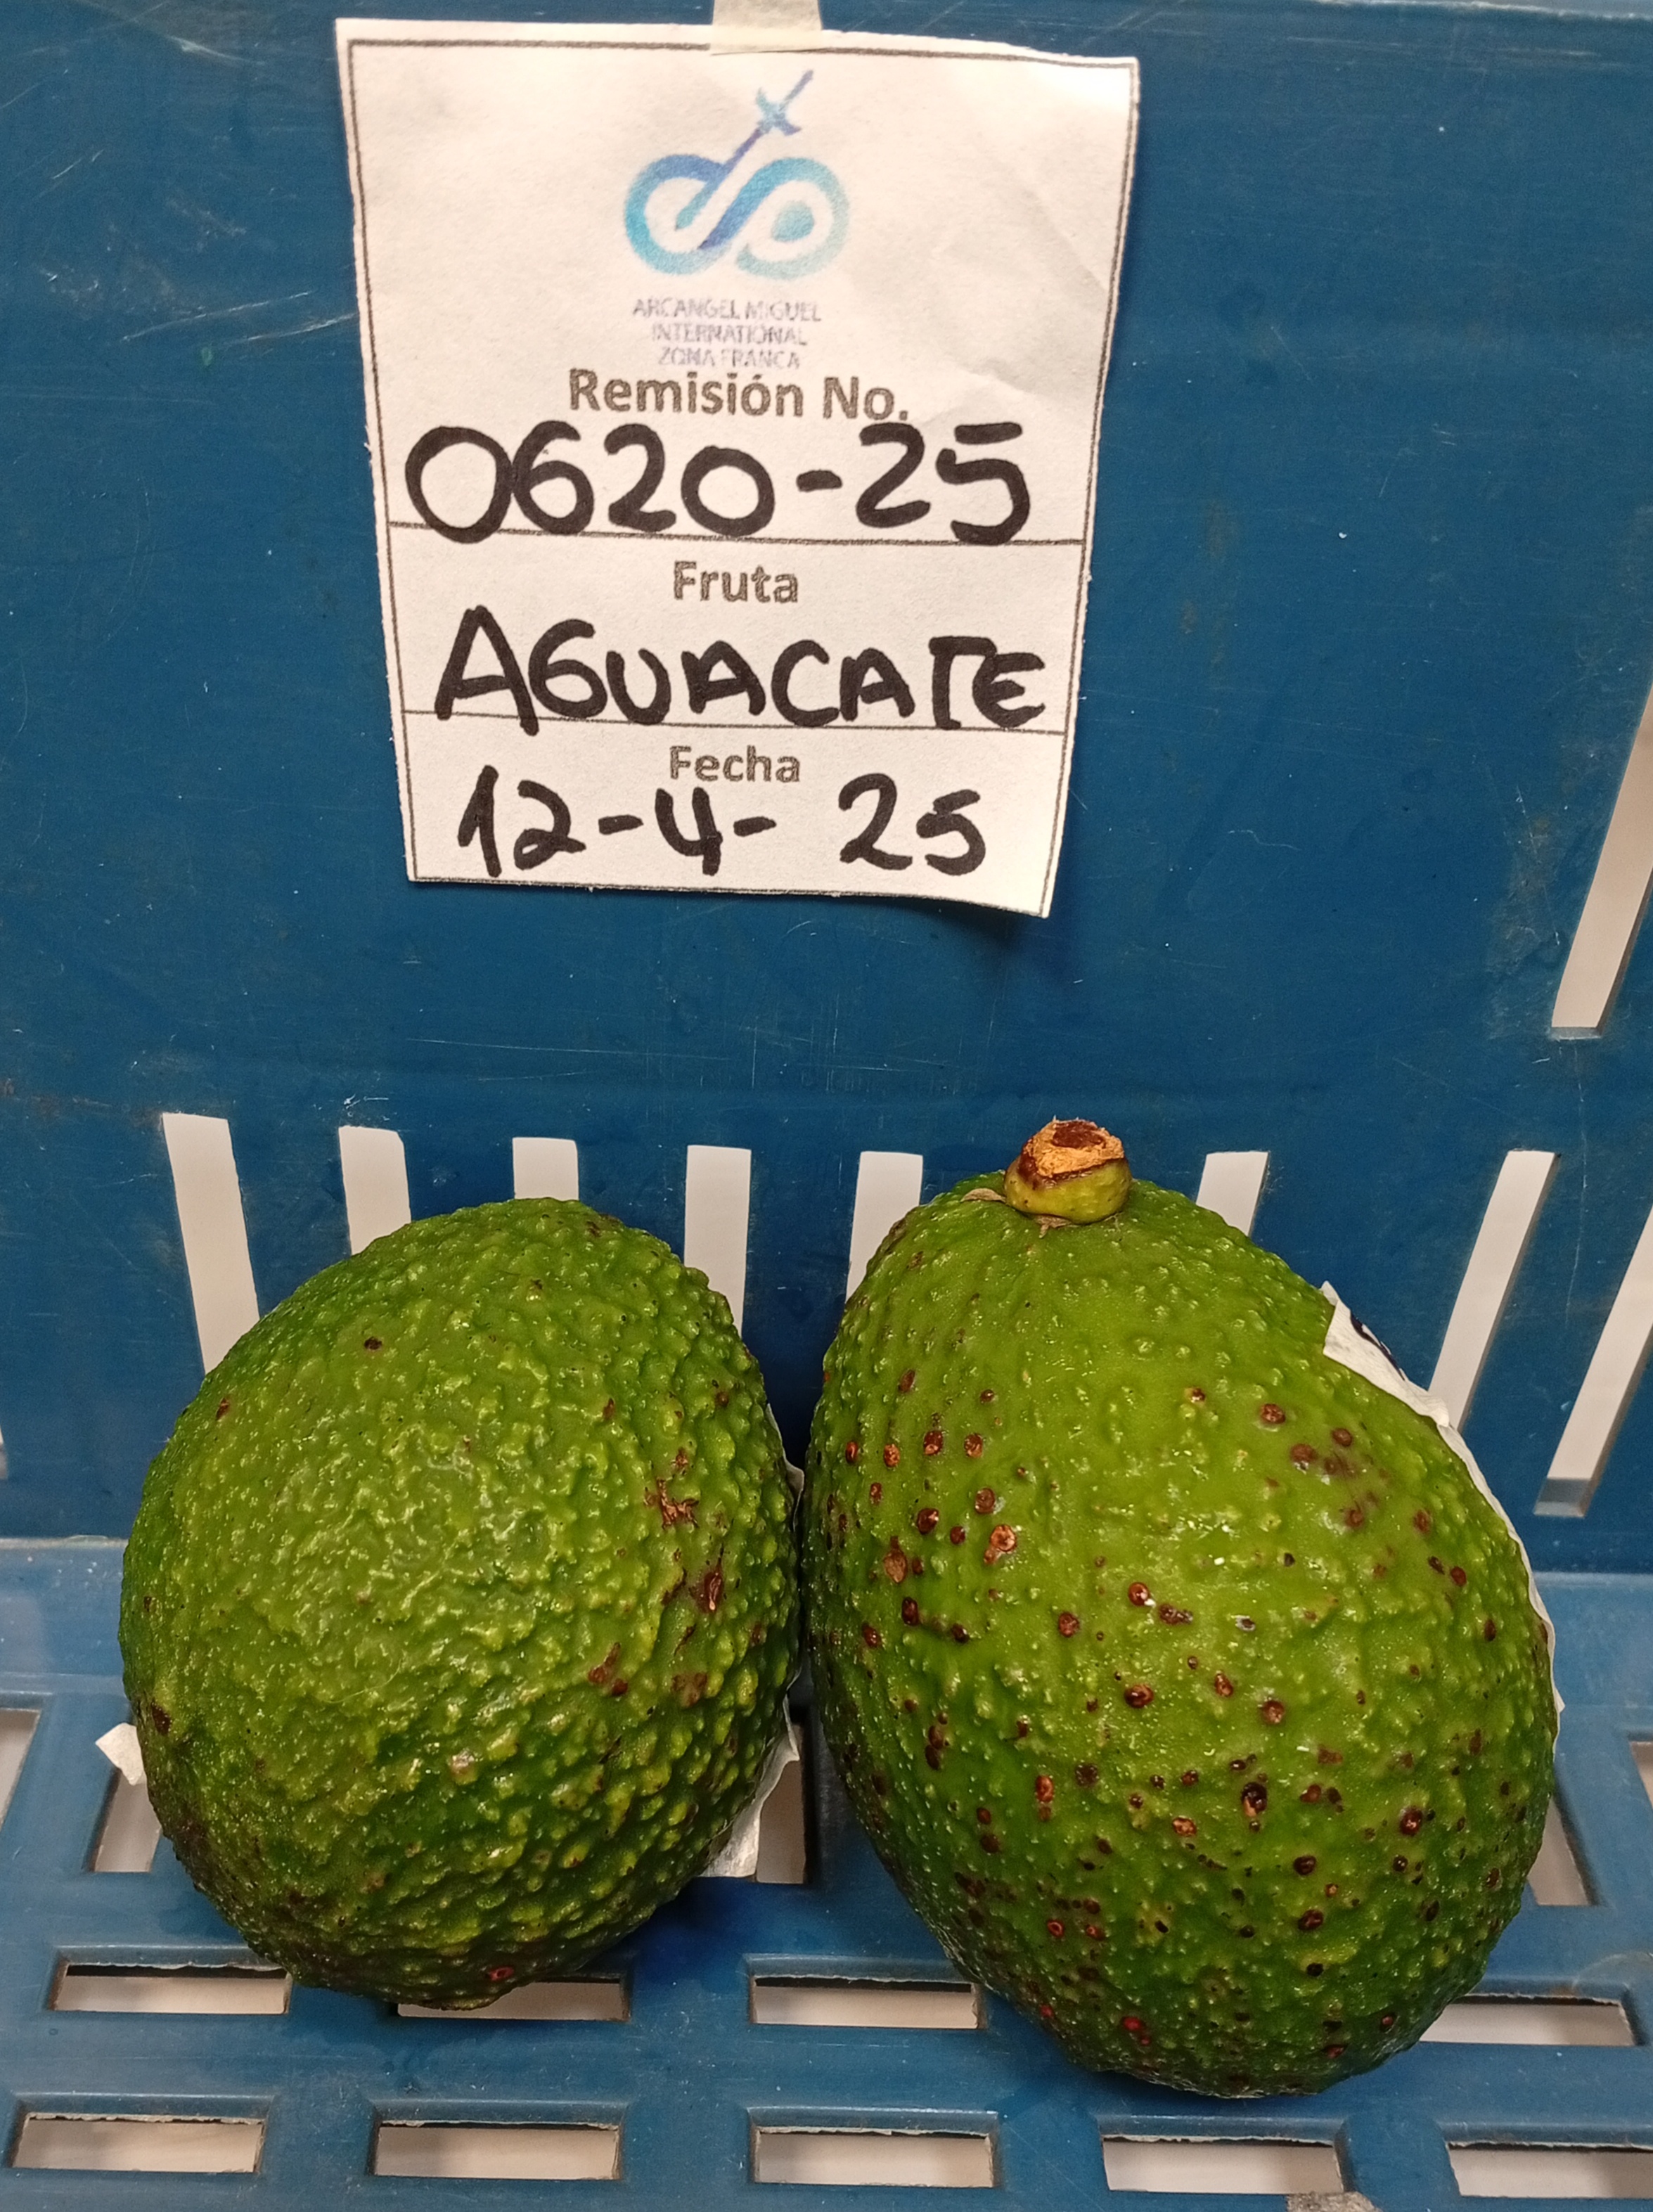 ARCANGEL MIGUEL
INTERNATIONAL
ZONA FRANCA
Remisión No.
0620-25
Fruta
AGUACATE
Fecha
12-4- 25